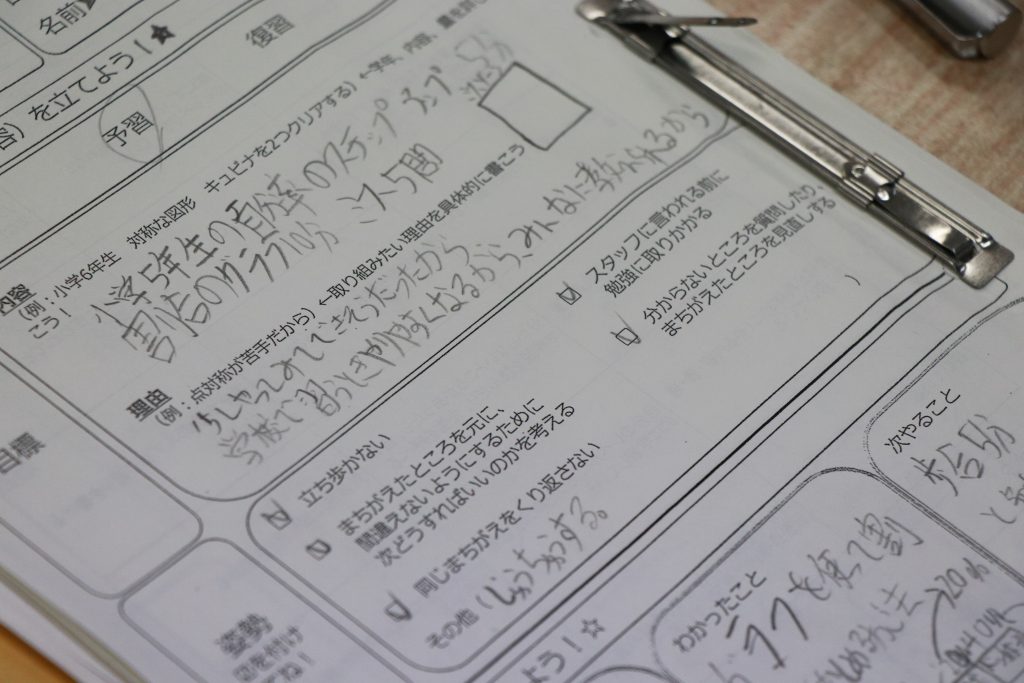 名前
を立てよう！☆
予習
復習
内容
（例：小学6年生　対称な図形　キュビナを2つクリアする）←学年、内容、量を詳し
こう！
小学5年生の百分率のステップ
割合のグラフ10分　ミス5問
理由
（例：点対称が苦手だから）←取り組みたい理由を具体的に書こう
学校で習うときやりやすくなるから、みんなに教えれるから
目標
立ち歩かない
まちがえたところを元に、
間違えないようにするために
次どうすればいいのかを考える
同じまちがえをくり返さない
その他（しゅうちゅうする。
スタッフに言われる前に
勉強に取りかかる
分からないところを質問したり、
まちがえたところを見直しする
）
姿勢
よう！☆
わかったこと
を使って割
次やること
歩合5分